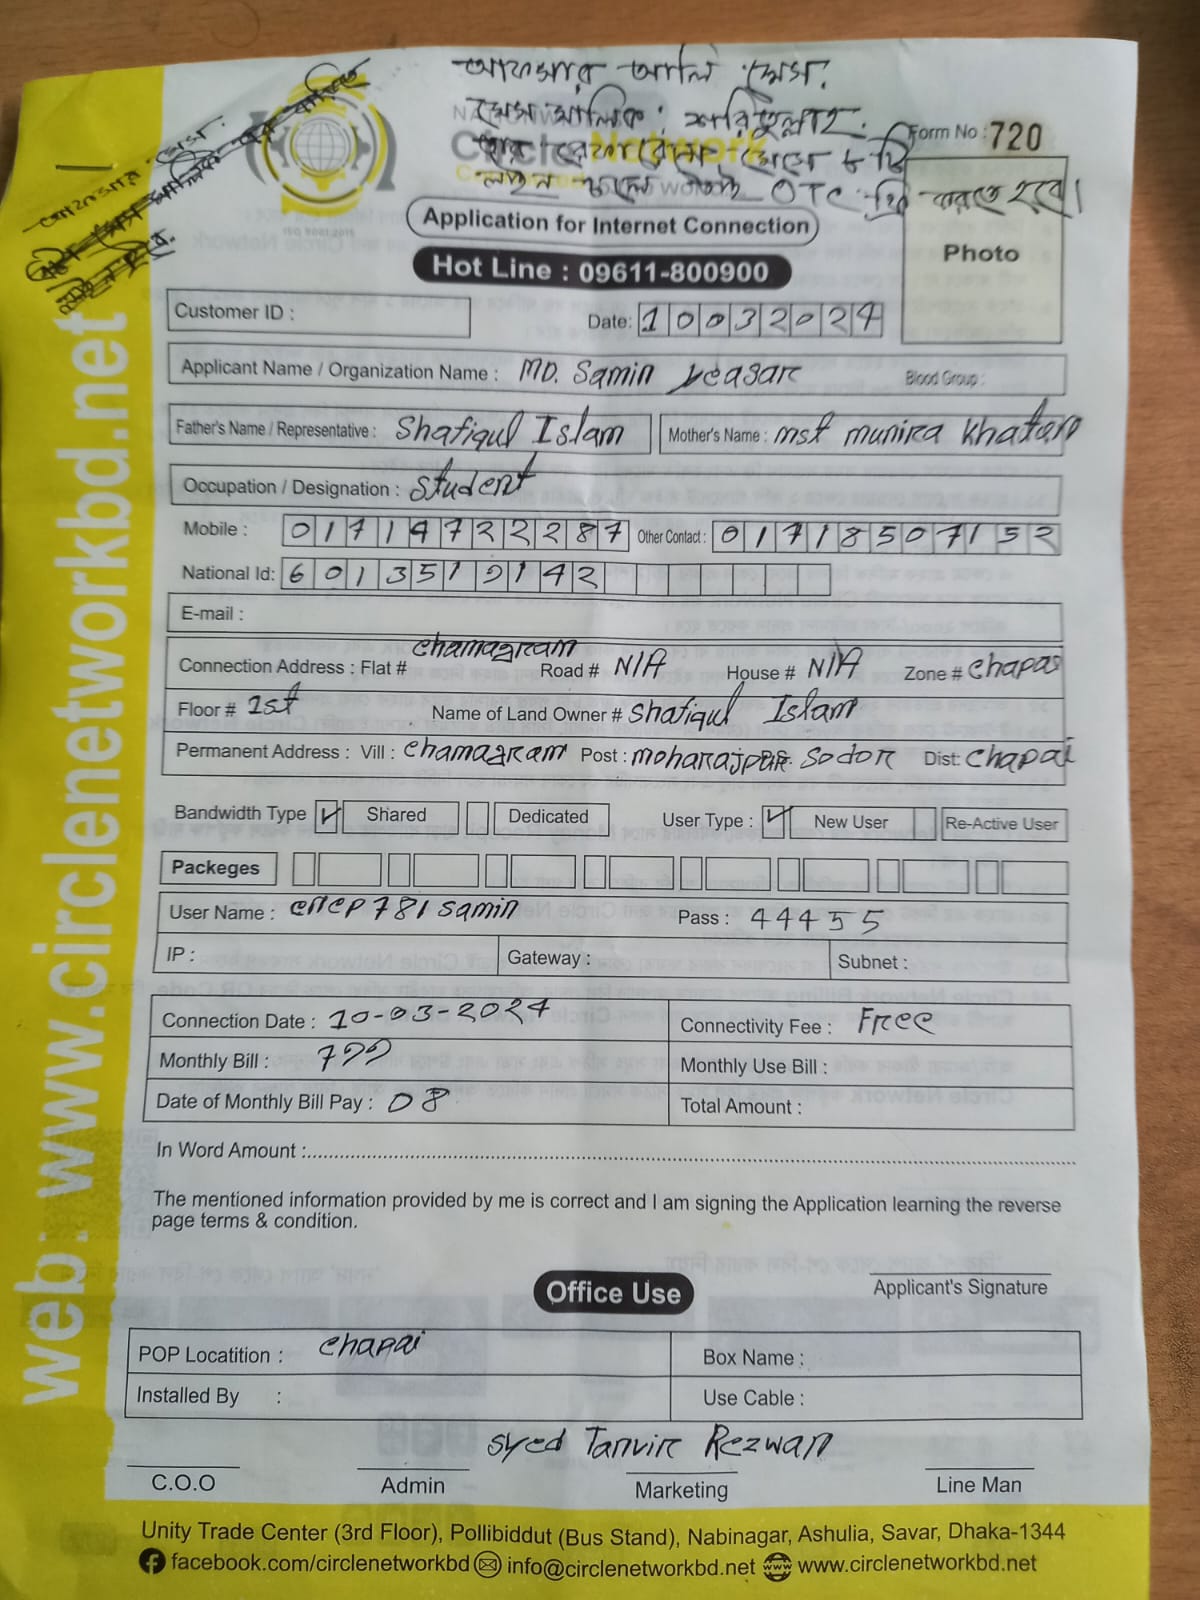 আফসার আলি মেস.
মেস মালিক: শরিতুল্লাহ.
Circle Network
লাইন চালে তাই OTC ফ্রি করতে হবে।
Form No : 720
Photo
Application for Internet Connection
Hot Line : 09611-800900
Customer ID :
Date: 10032024
Applicant Name / Organization Name : MD. Samin yeasar Blood Group :
Father's Name / Representative : Shafiqul Islam Mother's Name : mst munira khatan
Occupation / Designation : student
Mobile : 01714722287 Other Contact : 01718507152
National Id: 6013519142
E-mail :
Connection Address : Flat # chamagram Road # N/A House # N/A Zone # chapai
Floor # 1st Name of Land Owner # Shafiqul Islam
Permanent Address : Vill : chamagram Post : moharajpur. Sodor Dist: chapai
Bandwidth Type Shared Dedicated User Type : New User Re-Active User
Packeges
User Name : cncp781samin Pass : 44455
IP : Gateway : Subnet :
Connection Date : 10-03-2024 Connectivity Fee : Free
Monthly Bill : 799 Monthly Use Bill :
Date of Monthly Bill Pay : 08 Total Amount :
In Word Amount :
The mentioned information provided by me is correct and I am signing the Application learning the reverse
page terms & condition.
Applicant's Signature
Office Use
POP Locatition : chapai Box Name :
Installed By : Use Cable :
Syed Tanvir Rezwan
C.O.O Admin Marketing Line Man
Unity Trade Center (3rd Floor), Pollibiddut (Bus Stand), Nabinagar, Ashulia, Savar, Dhaka-1344
facebook.com/circlenetworkbd info@circlenetworkbd.net www.circlenetworkbd.net
web: www.circlenetworkbd.net